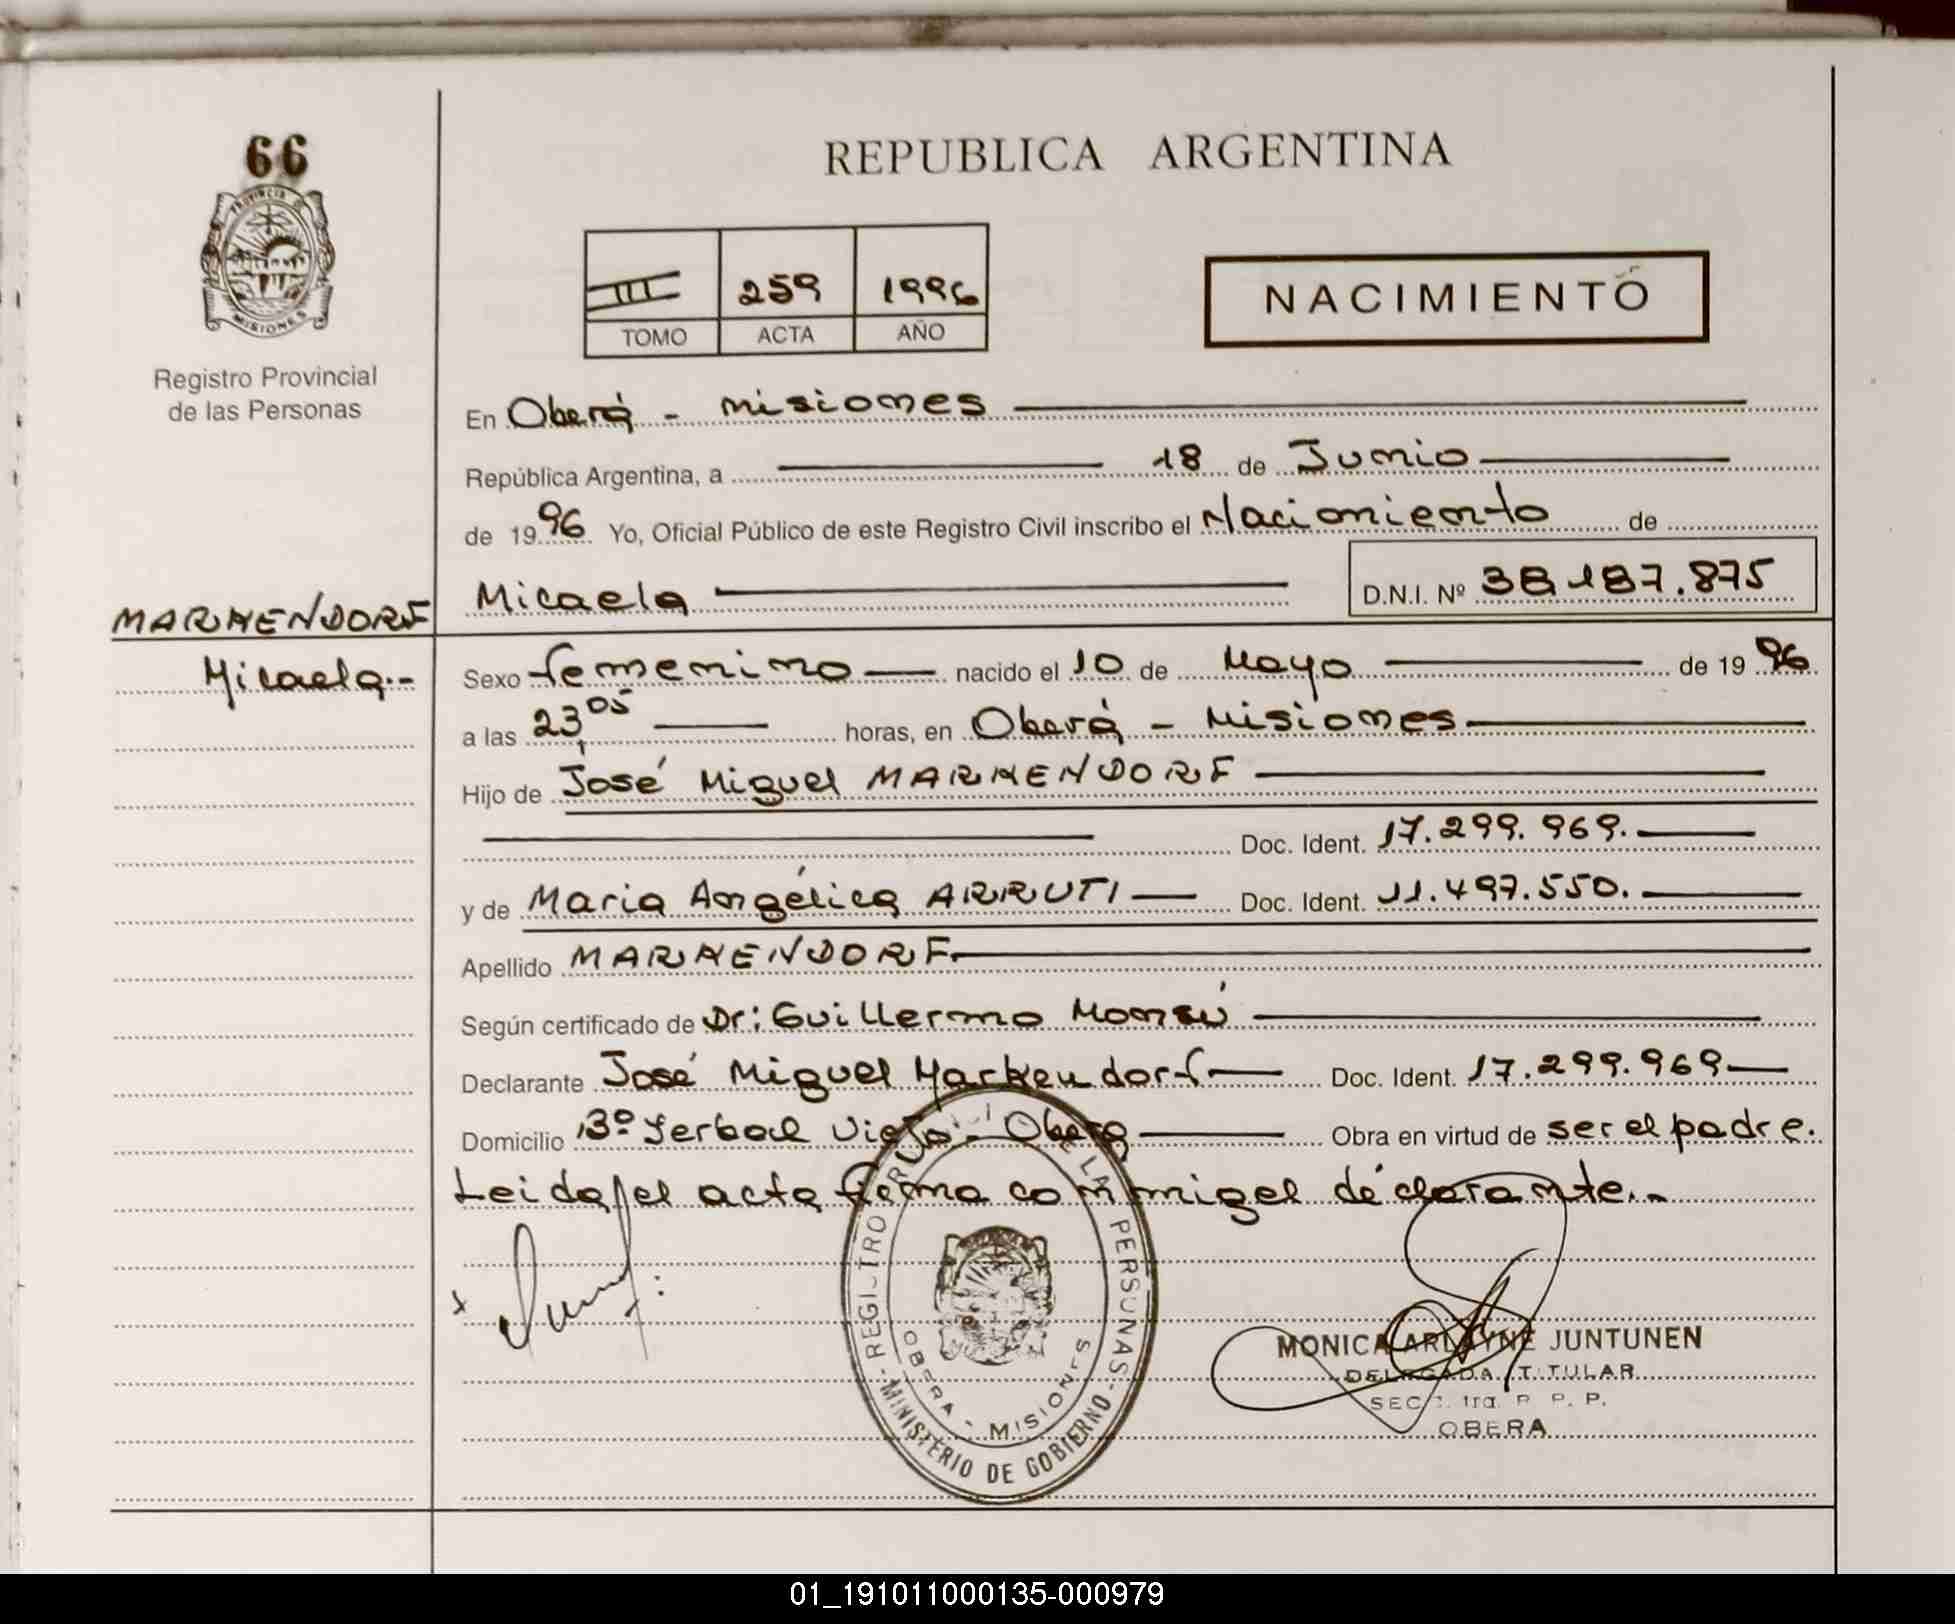 66
PROVINCIA DE
MISIONES
Registro Provincial
de las Personas
REPUBLICA ARGENTINA
III 259 1996
TOMO ACTA AÑO
NACIMIENTO
En Oberá - Misiones
República Argentina, a 18 de Junio
de 1996 Yo, Oficial Público de este Registro Civil inscribo el Nacimiento de
Micaela D.N.I. Nº 38.187.875
MARKENDORF
Micaela.-
Sexo femenino nacido el 10 de Mayo de 1996
a las 23,05 horas, en Oberá - Misiones
Hijo de José Miguel MARKENDORF
Doc. Ident. 17.299.969.
y de Maria Angélica ARRUTI Doc. Ident. 11.497.550.
Apellido MARKENDORF.
Según certificado de Dr: Guillermo Monsú
Declarante José Miguel Markendorf Doc. Ident. 17.299.969
Domicilio B° Yerbal Viejo - Obera Obra en virtud de ser el padre.
Leida el acta firma conmigo el declarante.-
REGISTRO DE LA PERSONAS
OBERA - MISIONES
MINISTERIO DE GOBIERNO
MONICA ARLAYNE JUNTUNEN
DELEGADA TITULAR
SECC. 1ra. R. P. P.
OBERA
01_191011000135-000979